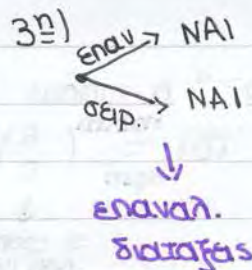 3η)
επαν ΝΑΙ
σειρ. ΝΑΙ
επαναλ.
διαταξεις